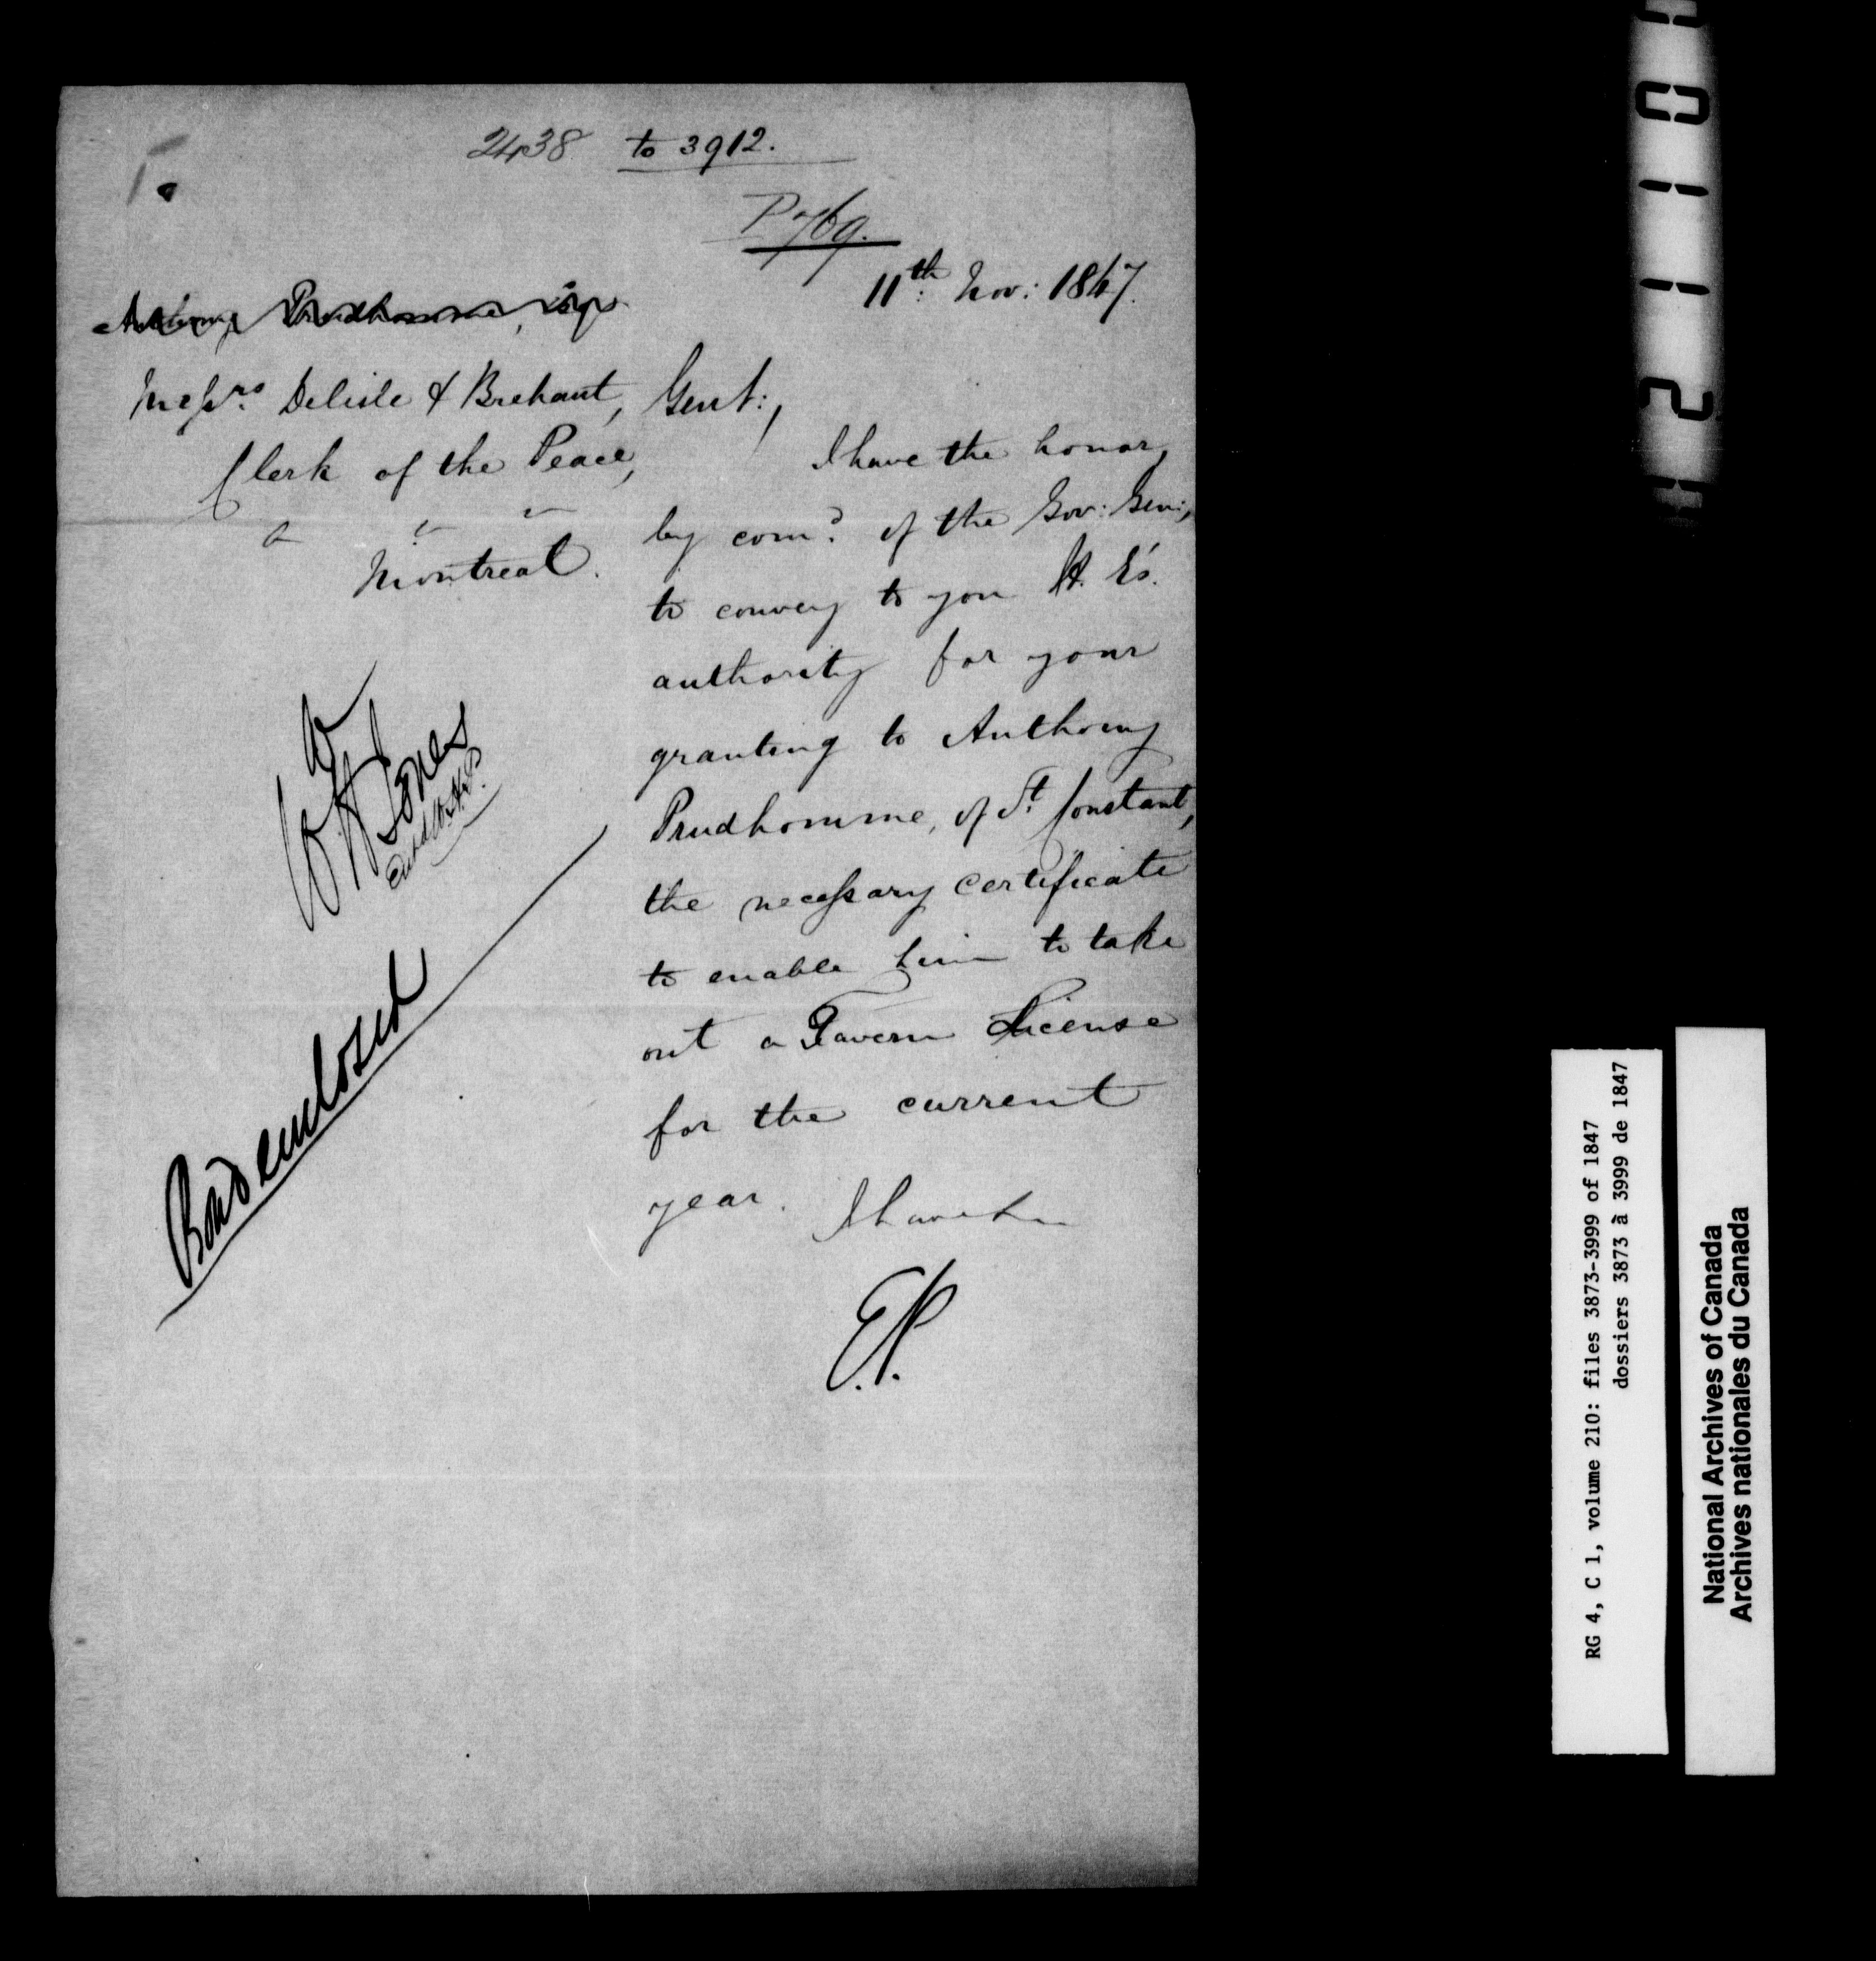 2438 to 3912.
P 769.
11th: Nov: 1847.
Anthony Prudhomme, Esq
Messrs. Delisle & Brehaut,
Clerk of the Peace,
Montreal.
Gent:,
I have the honor,
by comd. of the Gov: Gen:,
to convey to you H. E's.
authority for your
granting to Anthony
Prudhomme, of St. Constant,
the necessary certificate
to enable him to take
out a Tavern License
for the current
year. I have &c
E.P.
W H Jones
Bond enclosed
01112
RG 4, C 1, volume 210: files 3873-3999 of 1847
dossiers 3873 à 3999 de 1847
National Archives of Canada
Archives nationales du Canada